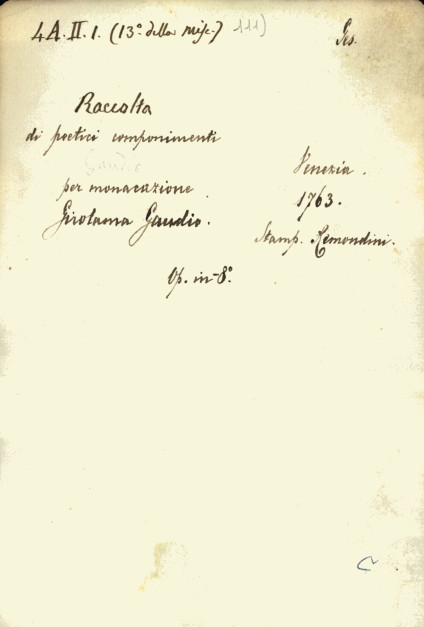 4A.II.1. (13º della Misc.) 111) Ges.
Raccolta
di poetici componimenti
Gaudio
per monacazione
Girolama Gaudio.
Venezia.
1763.
Stamp. Remondini.
Op. in-8º.
C